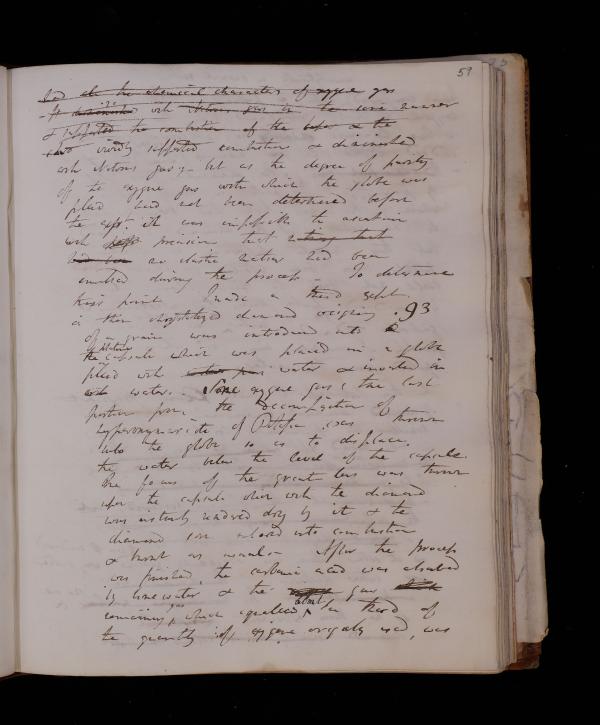 59
had all the chemical characters of oxygene gas
it diminished with nitrous gas in the same manner
& supported the combustion of the taper & the
vividly supported combustion & diminished
with nitrous gas; - but as the degree of purity
of the oxygene gas with which the globe was
filled had not been determined before
the expt. it was impossible to ascertain
with precision that nothing but
had been no elastic matter had been
emitted during the process - To determine
this point I made a third expt.
in this chrystallized diamond weighing .93
of a grain was introduced into a
the platina capsule which was placed in a globe
filled with water & inverted in
with water. Some oxygene gas; the last
portion from the decomposition of
hyperoxymuriate of Potassa was thrown
into the globe so as to displace
the water below the level of the capsule.
the focus of the great lens was thrown
upon the capsule which with the diamond
was instantly rendered dry by it & the
diamond soon entered into combustion
& burnt as usual - After the process
was finished, the carbonic acid was absorbed
by lime water & the gas
remaining, which equalled about one third of
the quantity of oxygene originaly used, was